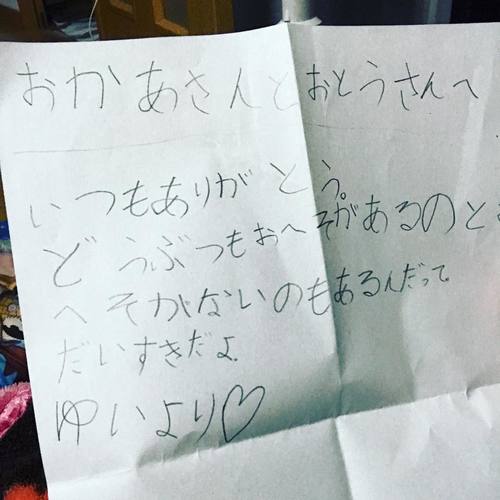 おかあさんとおとうさんへ
いつもありがとう。
どうぶつもおへそがあるのと
へそがないのもあるんだって
だいすきだよ
ゆいより♡